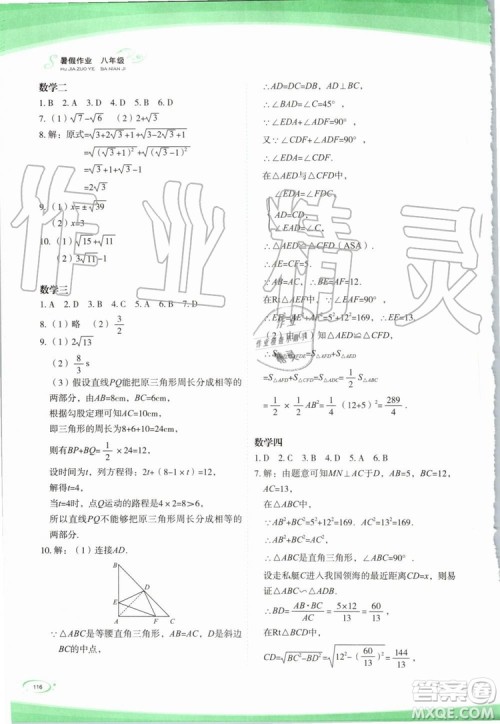 暑假作业 八年级
SHU JIA ZUO YE BA NIAN JI
数学二
1. B 2. A 3. D 4. D 5. C 6. D
7. (1) √7-√6 (2) 2+√3
8. 解：原式=√(3+2√3+1) + √(3-2√3+1)
=√(√3+1)² + √(√3-1)²
=√3+1+√3-1
=2√3
9. (1) x=±√39
(2) x=3
10. (1) √15+√11
(2) 3√11-1
数学三
1. A 2. D 3. B 4. A 5. A 6. B 7. B
8. (1) 略 (2) 3/2
9. (1) 2√13
(2) 8/3 s
(3) 假设直线PQ能把原三角形周长分成相等的
两部分，
根据勾股定理可知AC=10cm，
即三角形的周长为24cm，
则有BP+BQ=1/2×24=12，
设时间为t，列方程得：2t+(8-1×t)=12，
解得t=4，
当t=4时，点Q运动的路程是4×2=8>6，
所以直线PQ不能够把原三角形周长分成相等的
两部分.
10. 解：(1) 连接AD.
B
D
E
A
F
C
∵△ABC是等腰直角三角形，AB=AC，D为斜边
BC的中点，
116
∴AD=DC=BD，AD⊥BC，
∴∠BAD=∠C=45°，
∵∠EDA+∠ADF=90°，
又∵∠CDF+∠ADF=90°，
∴∠EDA=∠CDF.
在△AED与△CFD中，
∠EDA=∠CDF
AD=CD
∠EAD=∠C
∴△AED≌△CFD (ASA).
∴AE=CF=5.
∵AB=AC，
∴BE=AF=12.
在Rt△AEF中，
∵∠EAF=90°，
∴EF²=AE²+AF²=5²+12²=169，
∴EF=13，
(2) ∵△AED≌△CFD，
=S△AED+S△AFD
=S△CFD+S△AFD
=S△ADC
=1/2 S△ABC
=1/2×1/2 AB²=1/4×(12+5)²=289/4.
数学四
1. D 2. C 3. D 4. D 5. B 6. C
7. 解：由题意可知MN⊥AC于D，AB=5，BC=12，
AC=13，
在△ABC中，
∵AB²+BC²=5²+12²=169=13²，
∴AB²+BC²=AC²，
∴△ABC是直角三角形，∠ABC=90°.
设走私艇C进入我国领海的最近距离是CD=x，则
△ABC∽△BDC，
∴BD=AB·BC/AC=5×12/13=60/13，
在Rt△BCD中，
CD=√(BC²-BD²)=√(12²-(60/13)²)=√(144/13)²=144/13，
作业精灵
答案圈
MXQE.COM